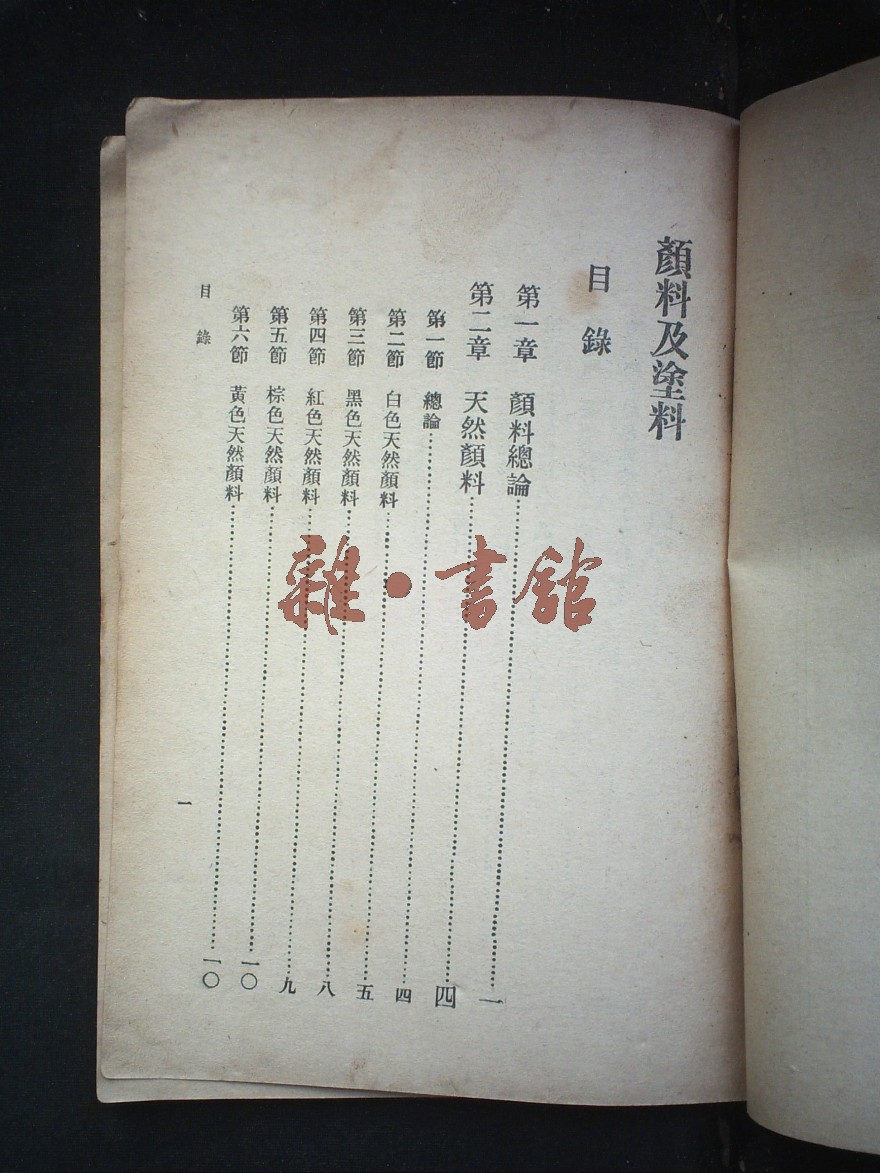 顏料及塗料
目錄
第一章 顏料總論…………一
第二章 天然顏料…………四
第一節 總論…………四
第二節 白色天然顏料…………五
第三節 黑色天然顏料…………八
第四節 紅色天然顏料…………九
第五節 棕色天然顏料…………一〇
第六節 黃色天然顏料…………一〇
目錄
一
雜·書館